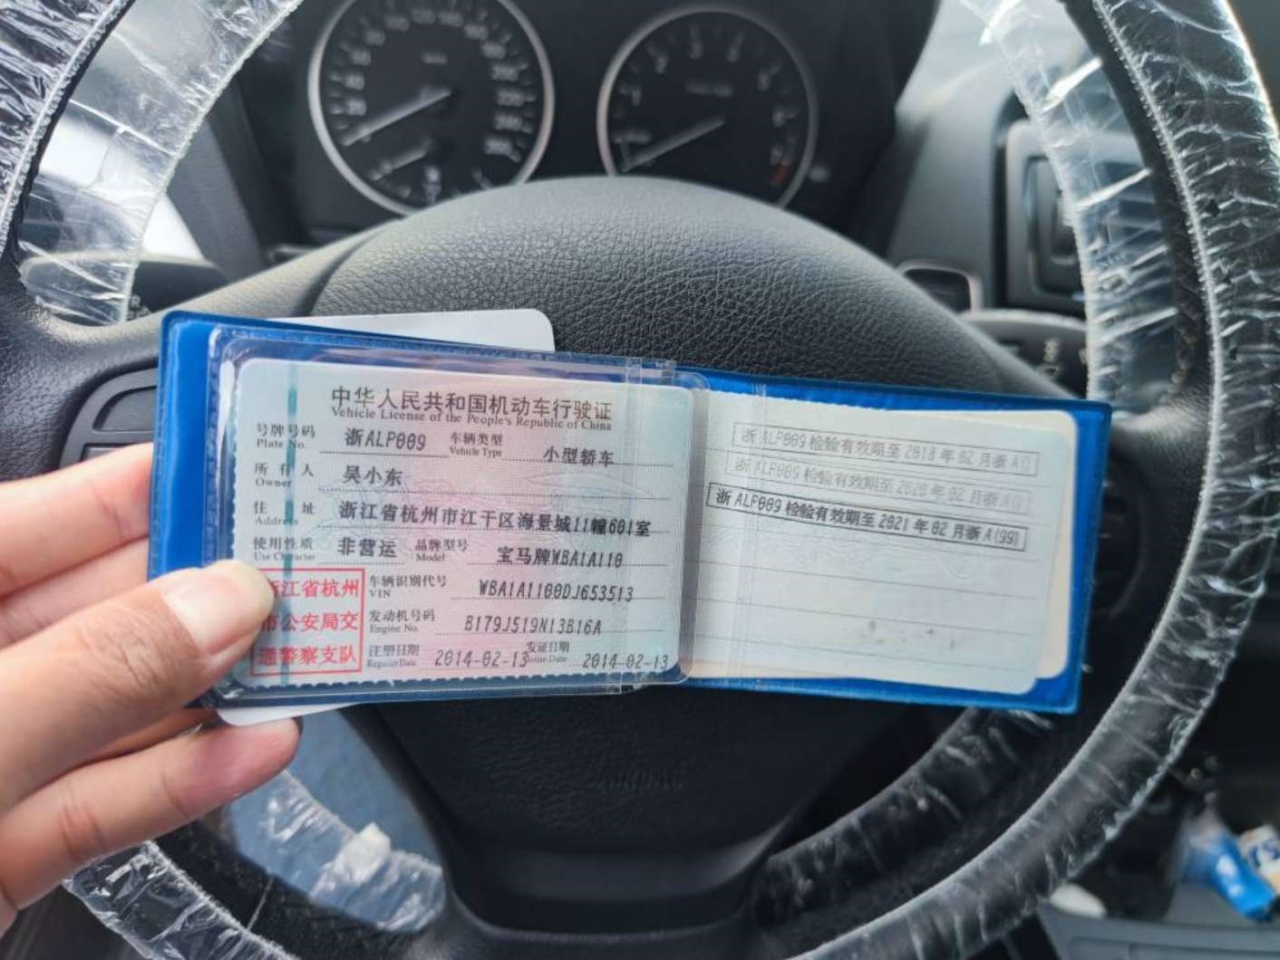 中华人民共和国机动车行驶证
Vehicle License of the People's Republic of China
号牌号码 浙ALP009 车辆类型 小型轿车
Plate No. Vehicle Type
所有人 吴小东
Owner
住址 浙江省杭州市江干区海景城11幢601室
Address
使用性质 非营运 品牌型号 宝马牌WBA1A110
Use Character Model
浙江省杭州
市公安局交
通警察支队
车辆识别代号 WBA1A1100DJ653513
VIN
发动机号码 B179J519N13B16A
Engine No.
注册日期 2014-02-13 发证日期 2014-02-13
Register Date Issue Date
浙ALP009检验有效期至2018年02月浙A
浙ALP009检验有效期至2020年02月浙A
浙ALP009检验有效期至2021年02月浙A(99)